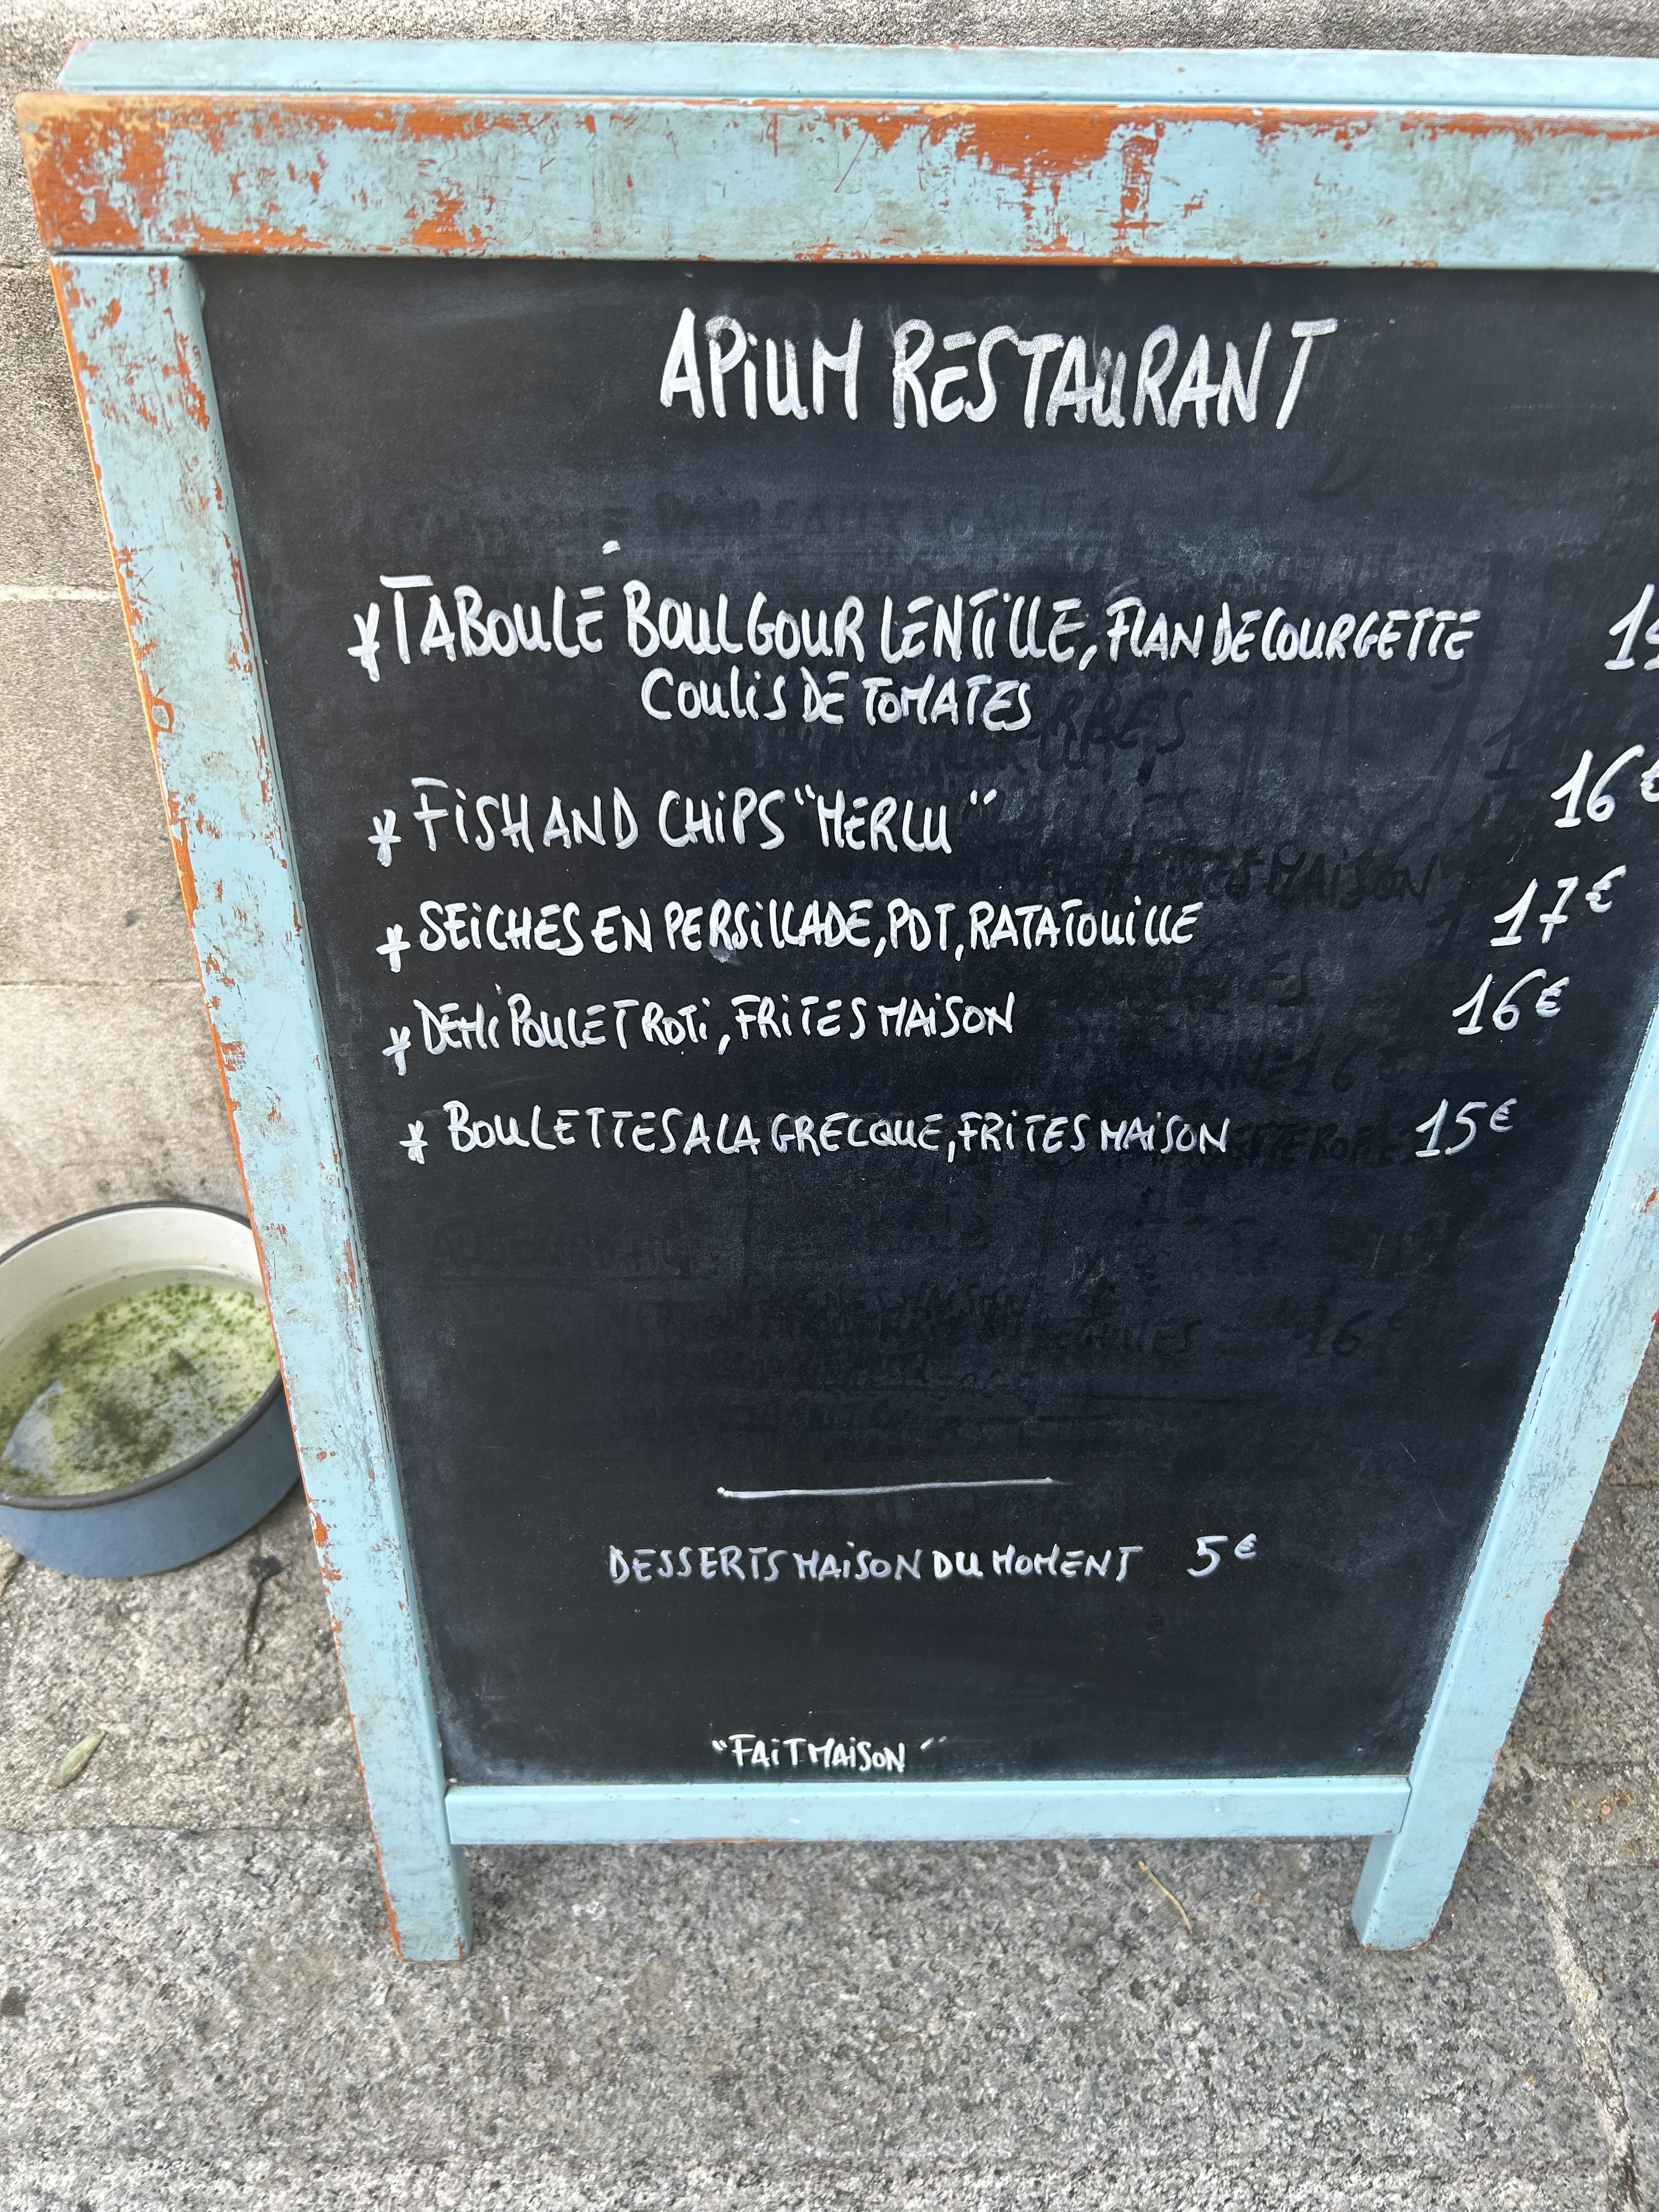 APIUM RESTAURANT
*TABOULE BOULGOUR LENTILLE, FLAN DE COURGETTE
COULIS DE TOMATES
* FISH AND CHIPS "MERLU" 16€
* SEICHES EN PERSILLADE, PDT, RATATOUILLE 17€
* DEMI POULET ROTI, FRITES MAISON 16€
* BOULETTES A LA GRECQUE, FRITES MAISON 15€
DESSERTS MAISON DU MOMENT 5€
"FAIT MAISON"